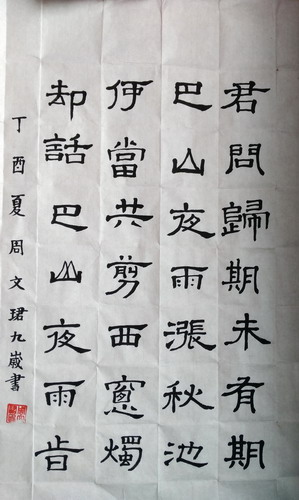 君問歸期未有期
巴山夜雨漲秋池
伊當共剪西窻燭
却話巴山夜雨旹
丁酉夏周文珺九歲書